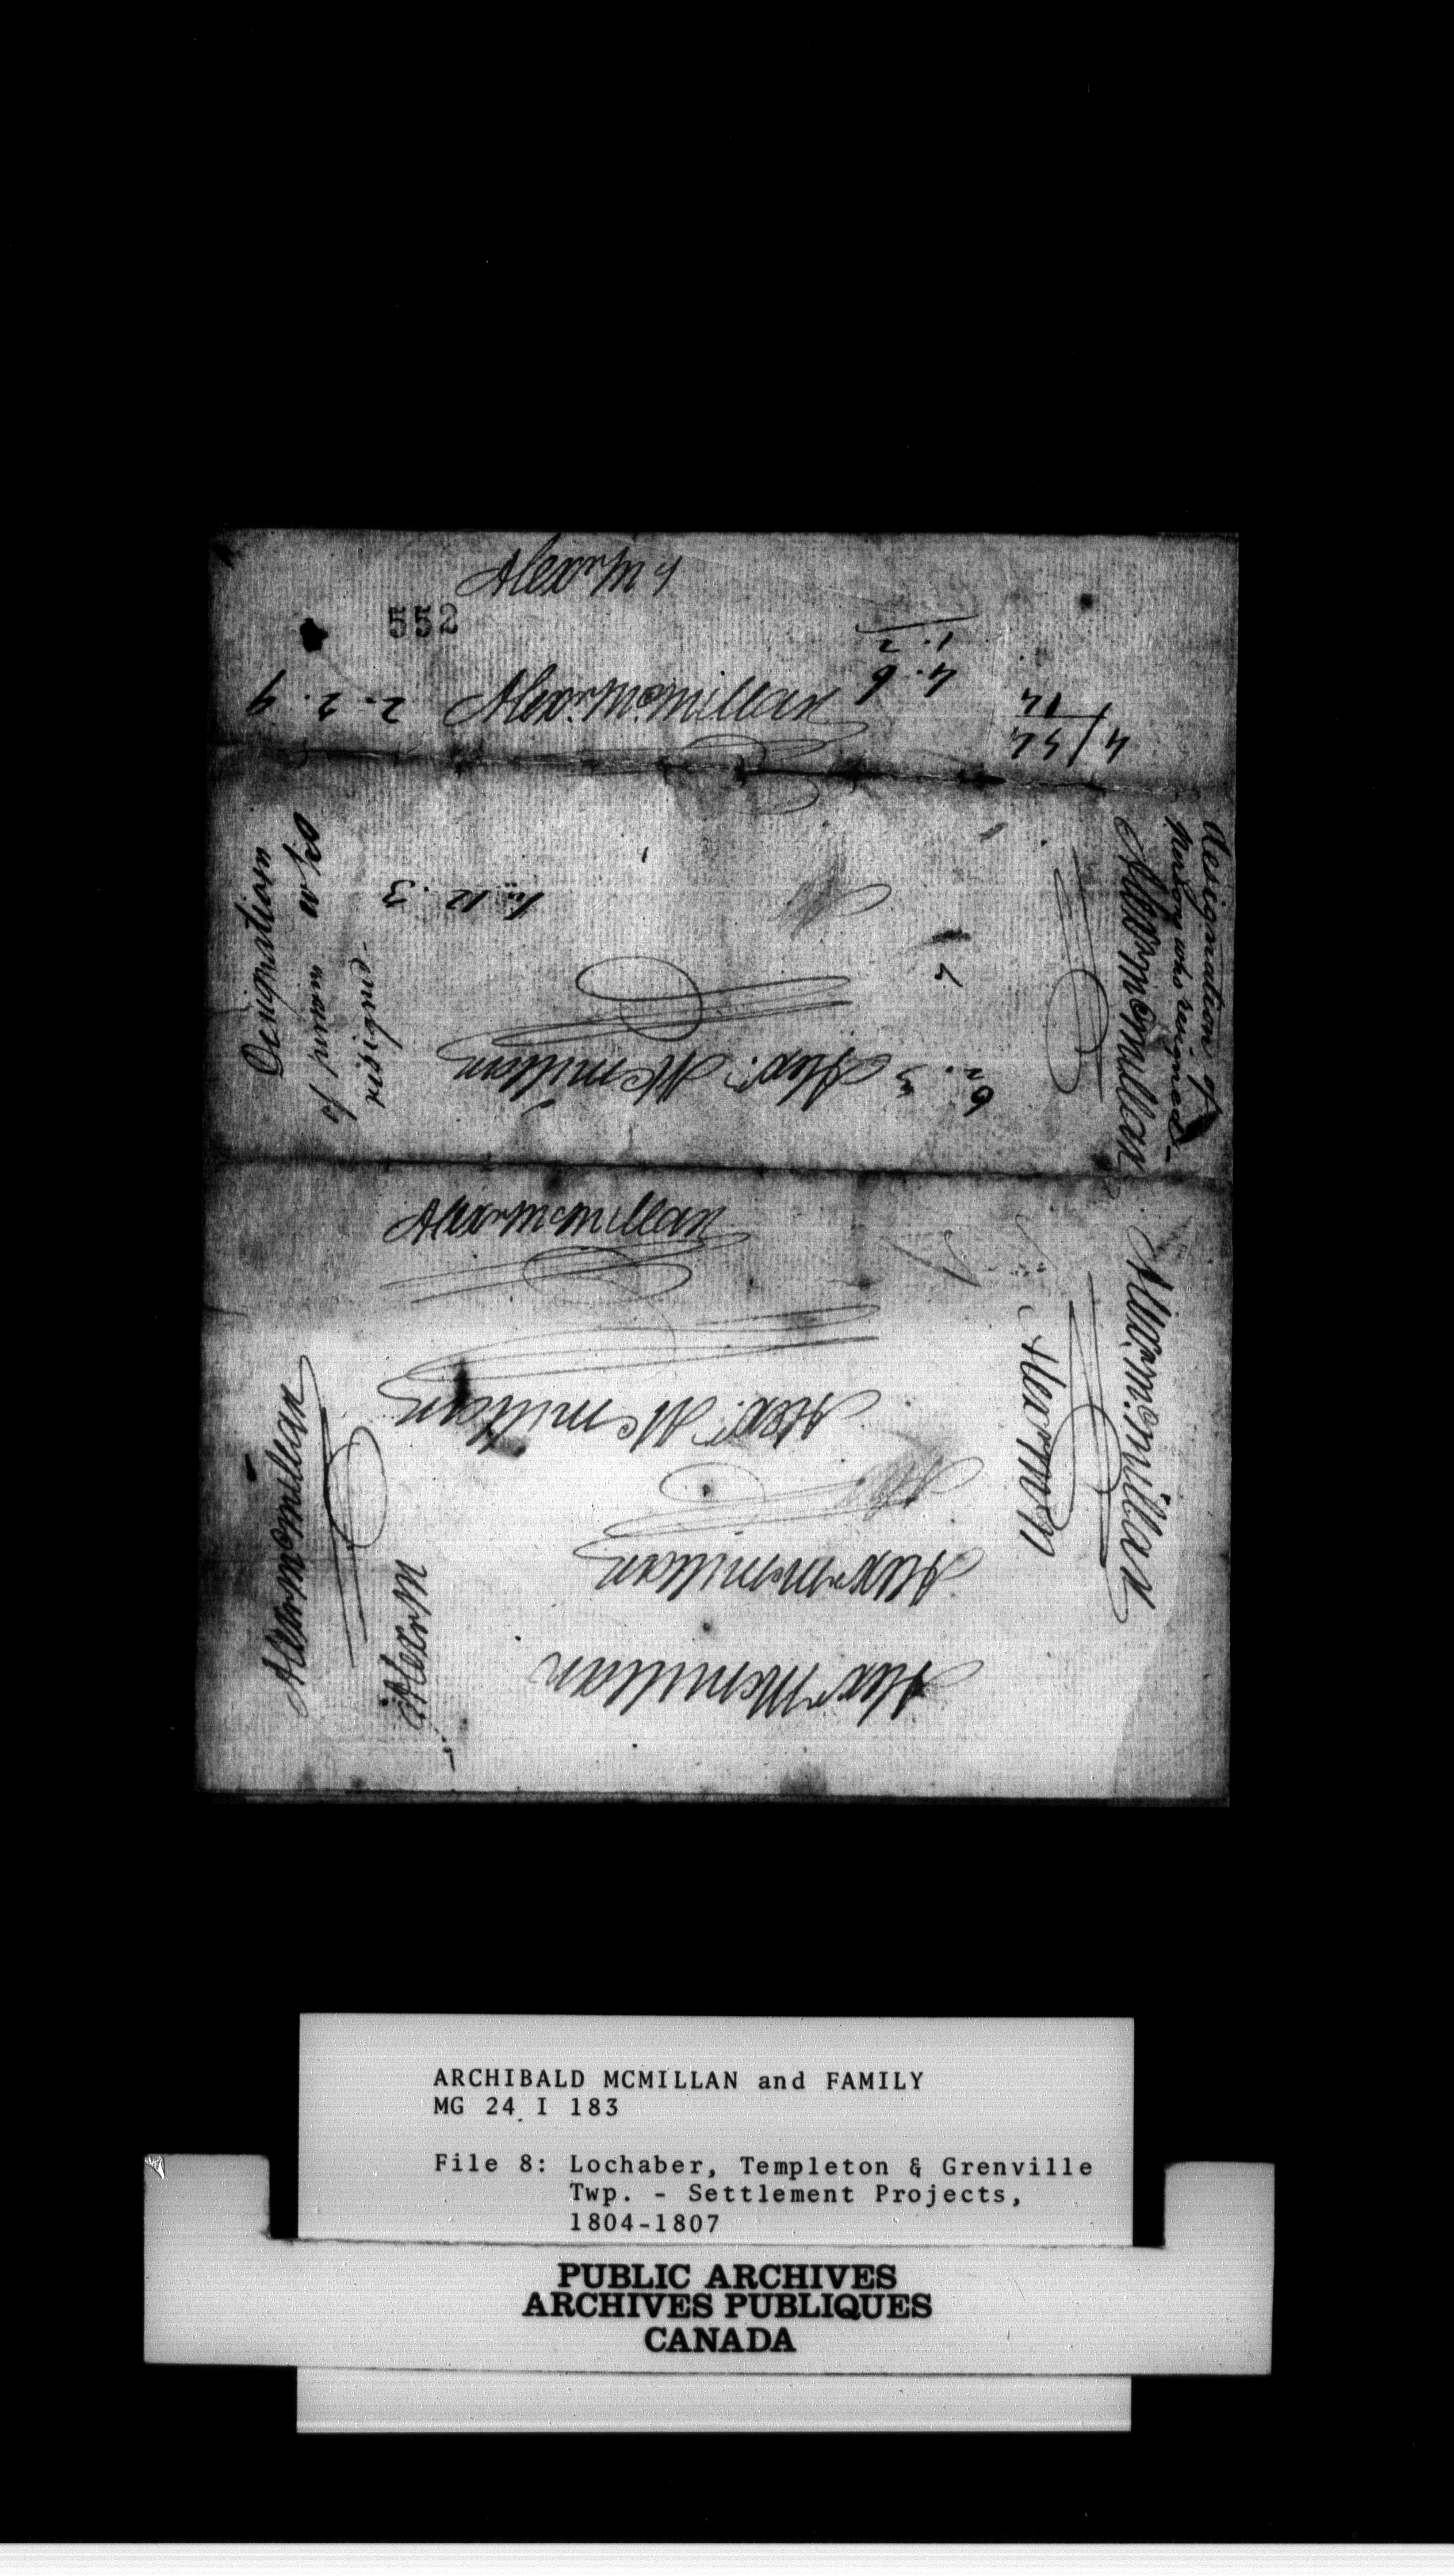 Alexr M
552
1. 2
4. 6
14
4/54
2. 2. 9
Alexr McMillan
Designation
of persons who
resigned-
1. 12. 3
Designation of
parties who resigned-
Alexr McMillan
Alexr McMillan
6
Alexr McMillan
Alexr McMillan
Alexr McMillan
Alexr McM
Alexr McMillan
Alexr McMillan
Alexr M
Alexr McMillan
Alexr McMillan
ARCHIBALD MCMILLAN and FAMILY
MG 24 I 183
File 8: Lochaber, Templeton & Grenville
Twp. - Settlement Projects,
1804-1807
PUBLIC ARCHIVES
ARCHIVES PUBLIQUES
CANADA